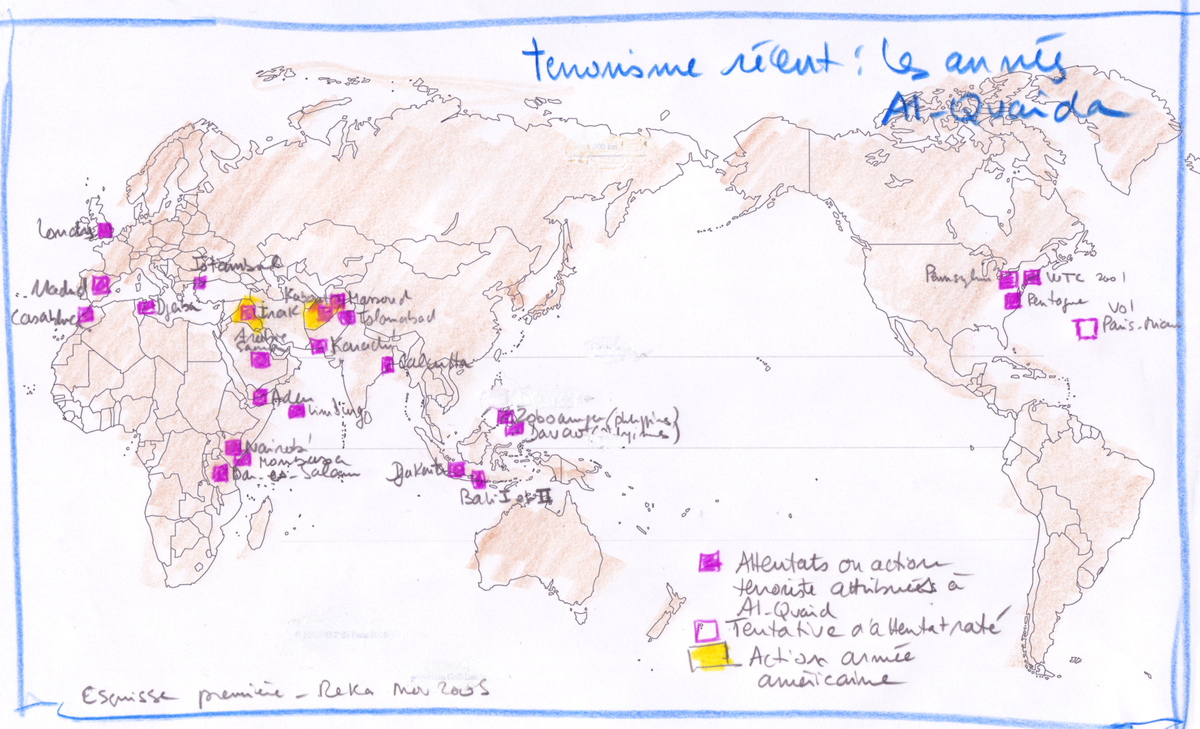 terrorisme récent : les années
Al-Quaida
Londres
Istambul
Madrid
Casablanca
Djerba
Kaboul
Massoud
Irak
Islamabad
Arabie
Saoudite
Karachi
Calcutta
Aden
Limburg
Nairobi
Mombassa
Dar-es-Salaam
Zoboanga (philippines)
Davao (philippines)
Djakarta
Bali I et II
Pennsylvnie
WTC 2001
Pentagone
Vol
Paris-Miami
Attentats ou action
terroriste attribuées à
Al-Quaid
Tentative d'attentat raté
Action armée
américaine
Esquisse première - Reka Nov 2005